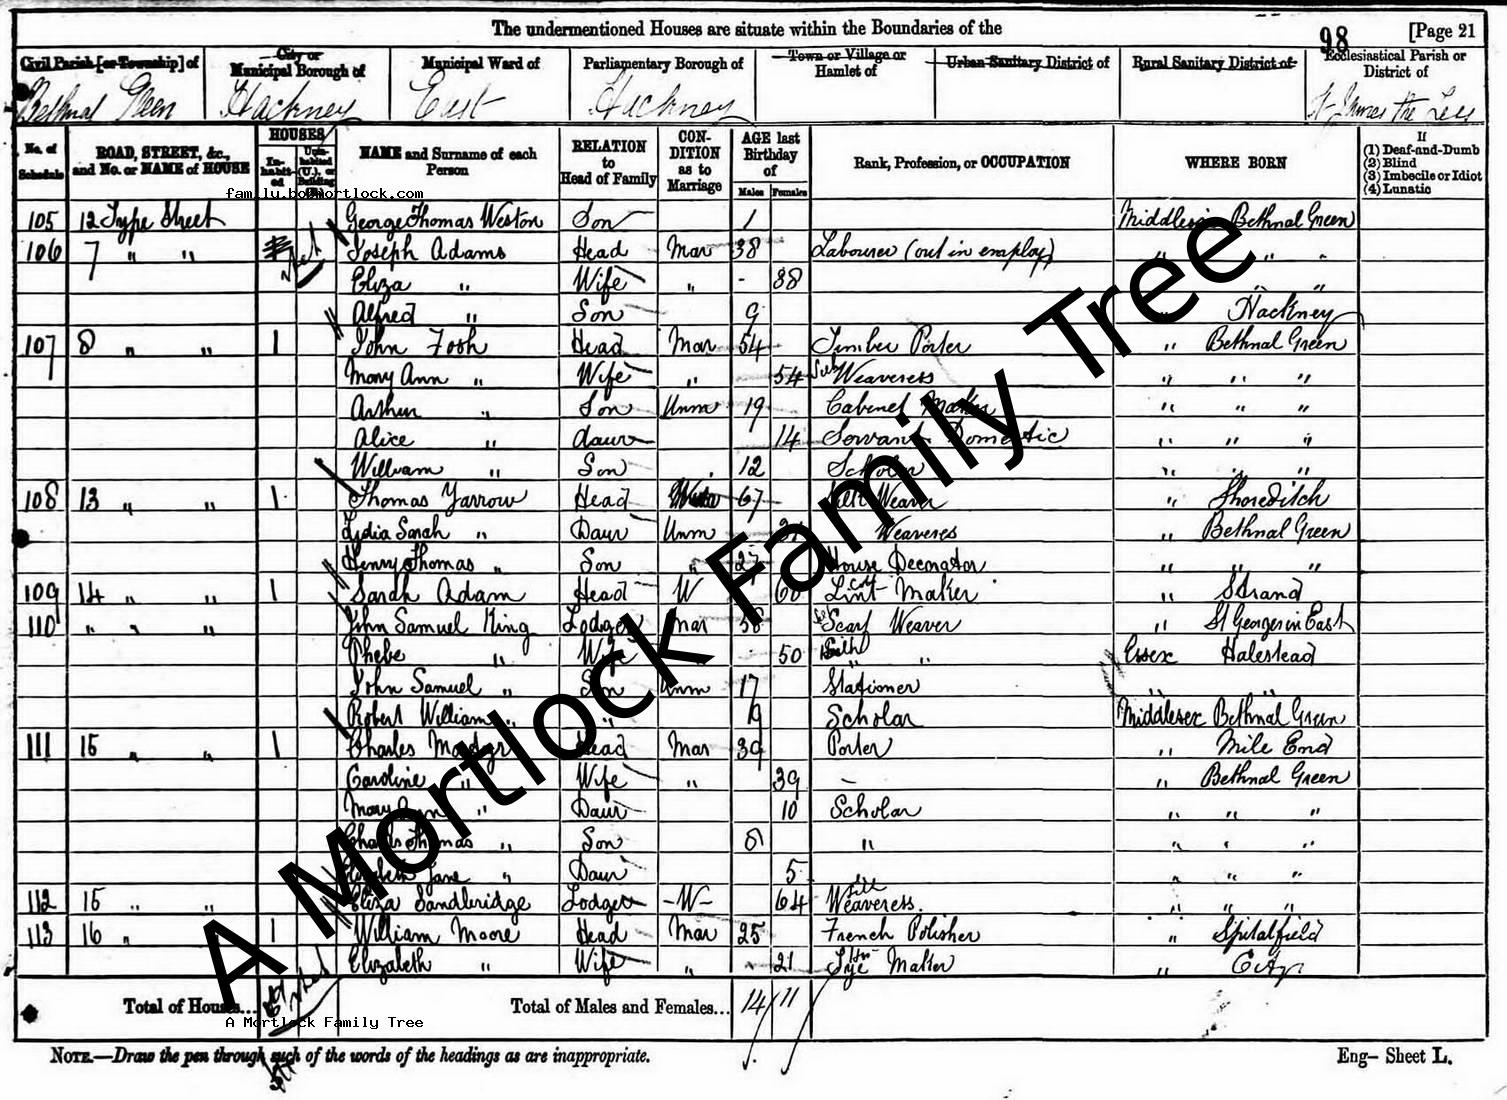 The undermentioned Houses are situate within the Boundaries of the
98 [Page 21
Civil Parish [or Township] of
City or Municipal Borough of
Municipal Ward of
Parliamentary Borough of
Town or Village or Hamlet of
Urban Sanitary District of
Rural Sanitary District of
Ecclesiastical Parish or District of
Bethnal Green Hackney East Hackney St James the Less
No. of Schedule
ROAD, STREET, &c., and No. or NAME of HOUSE
HOUSES
In-habit-ed
Unin-habited (U.), or Building
NAME and Surname of each Person
RELATION to Head of Family
CON-DITION as to Marriage
AGE last Birthday of
Males Females
Rank, Profession, or OCCUPATION
WHERE BORN
If
(1) Deaf-and-Dumb
(2) Blind
(3) Imbecile or Idiot
(4) Lunatic
105 12 Type Street George Thomas Weston Son 1 Middlesex Bethnal Green
106 7 " " Joseph Adams Head Mar 38 Labourer (out in employ) " " "
Eliza " Wife " 38 " "
Alfred " Son 9 Hackney
107 8 " " 1 John Fosh Head Mar 54 Timber Porter " Bethnal Green
Mary Ann " Wife " 54 Silk Weaveress " " "
Arthur " Son Unm 19 Cabinet Maker " " "
Alice " Daur 14 Servant Domestic " " "
William " Son 12 Scholar " " "
108 13 " " 1 Thomas Yarrow Head 67 Silk Weaver " Shoreditch
Lydia Sarah " Daur Unm Weaveress " Bethnal Green
Henry Thomas " Son " House Decorator " " "
109 14 " " 1 Sarah Adam Head W 60 Lint Maker " Strand
110 " " " John Samuel King Lodger Mar 58 Scarf Weaver " St Georges in East
Phebe " Wife 50 " " Essex Halestead
John Samuel " Son Unm 17 Stationer " "
Robert William " " 9 Scholar Middlesex Bethnal Green
111 15 " " 1 Charles Head Mar 39 Porter " Mile End
Caroline " Wife " 39 - " Bethnal Green
Mary Ann " Daur 10 Scholar " " "
Charles Thomas " Son 8 " " " "
Elizabeth Jane " Daur 5 " " " "
112 15 " " Eliza Sandbridge Lodger W 64 Silk Weaveress " " "
113 16 " 1 William Moore Head Mar 25 French Polisher " Spitalfield
Elizabeth " Wife " 21 Maker " City
Total of Houses...
Total of Males and Females... 14 11
NOTE.—Draw the pen through such of the words of the headings as are inappropriate.
Eng– Sheet L.
A Mortlock Family Tree
A Mortlock Family Tree